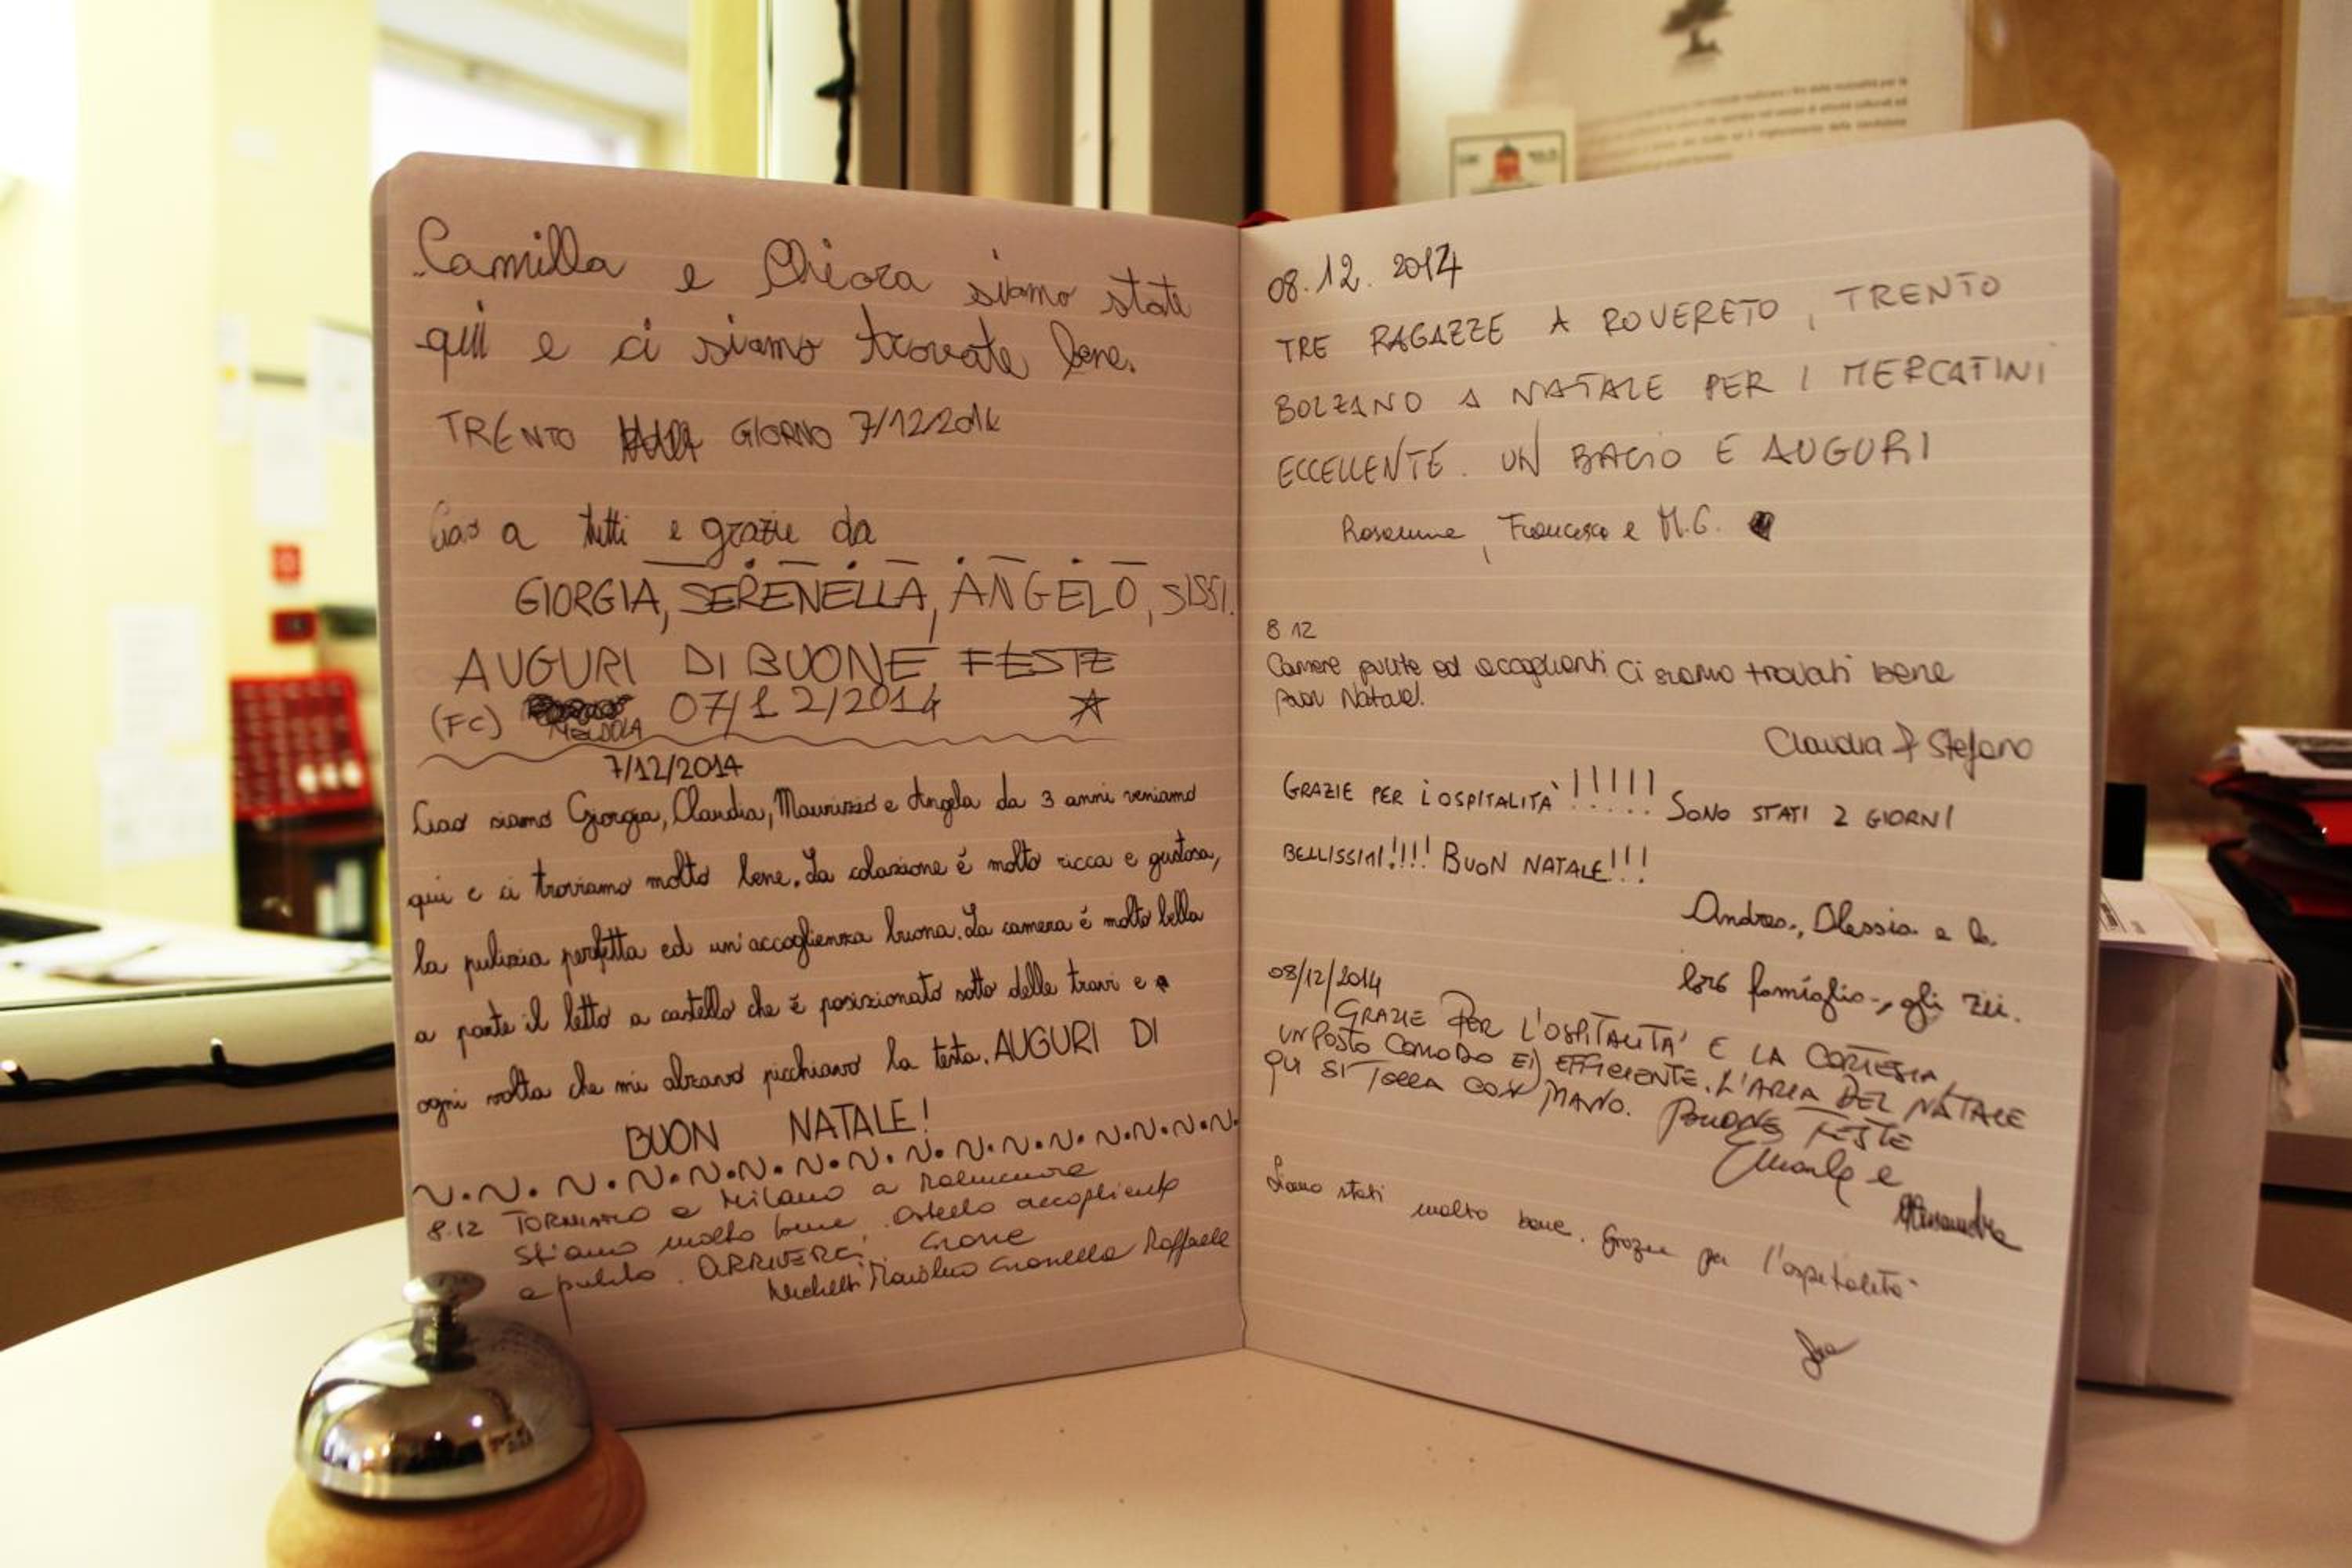 Camilla e Chiara siamo state
qui e ci siamo trovate bene.
TRENTO GIORNO 7/12/2014
Ciao a tutti e grazie da
GIORGIA, SERENELLA, ANGELO, SISSI.
AUGURI DI BUONE FESTE
(FC) MELDOLA 07/12/2014
7/12/2014
Ciao siamo Giorgia, Claudia, Maurizio e Angela da 3 anni veniamo
qui e ci troviamo molto bene. La colazione é molto ricca e gustosa,
la pulizia perfetta ed un'accoglienza buona. La camera é molto bella
a parte il letto a castello che é posizionato sotto delle travi e
ogni volta che mi alzavo picchiavo la testa. AUGURI DI
BUON NATALE!
8.12 TORNIAMO a MILANO a
Stiamo molto bene. Ostello accogliente
e pulito. ARRIVERCI.
Raffaele
08.12.2014
TRE RAGAZZE A ROVERETO, TRENTO
BOLZANO A NATALE PER I MERCATINI
ECCELLENTE. UN BACIO E AUGURI
Rosanna, Francesca e M.G.
8 12
Camere pulite ed accoglienti ci siamo trovati bene
Buon Natale!
Claudia & Stefano
GRAZIE PER L'OSPITALITÀ!!!!! SONO STATI 2 GIORNI
BELLISSIMI!!!! BUON NATALE!!!
Andrea, Alessia e la
loro famiglia, gli zii.
08/12/2014
GRAZIE PER L'OSPITALITA' E LA CORTESIA,
UN POSTO COMODO ED EFFICIENTE. L'ARIA DEL NATALE
QUI SI TOCCA CON MANO. BUONE FESTE
e
Alessandra
Siamo stati molto bene. Grazie per l'ospitalità